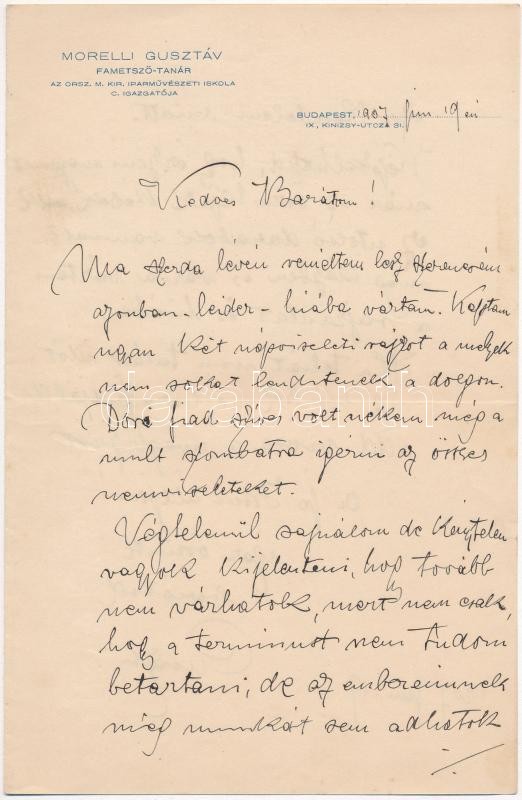 MORELLI GUSZTÁV
FAMETSZŐ-TANÁR
AZ ORSZ. M. KIR. IPARMŰVÉSZETI ISKOLA
C. IGAZGATÓJA
BUDAPEST, 1907 jun 19 én
IX., KINIZSY-UTCZA 31.
Kedves Barátom!
Ma szerda lévén reméltem lesz szerencsém
azonban - leider - hiába vártam. Kaptam
ugyan két népviseleti rajzot a melyek
nem sokat lendítenek a dolgon.
volt nékem még a
mult szombatra igérni az összes
nemviseleteket.
Végtelenül sajnálom de kénytelen
vagyok kijelenteni, hogy tovább
nem várhatok, mert nem csak,
hogy a terminust nem tudom
betartani, de az embereimnek
még munkát sem adhatok
databanth